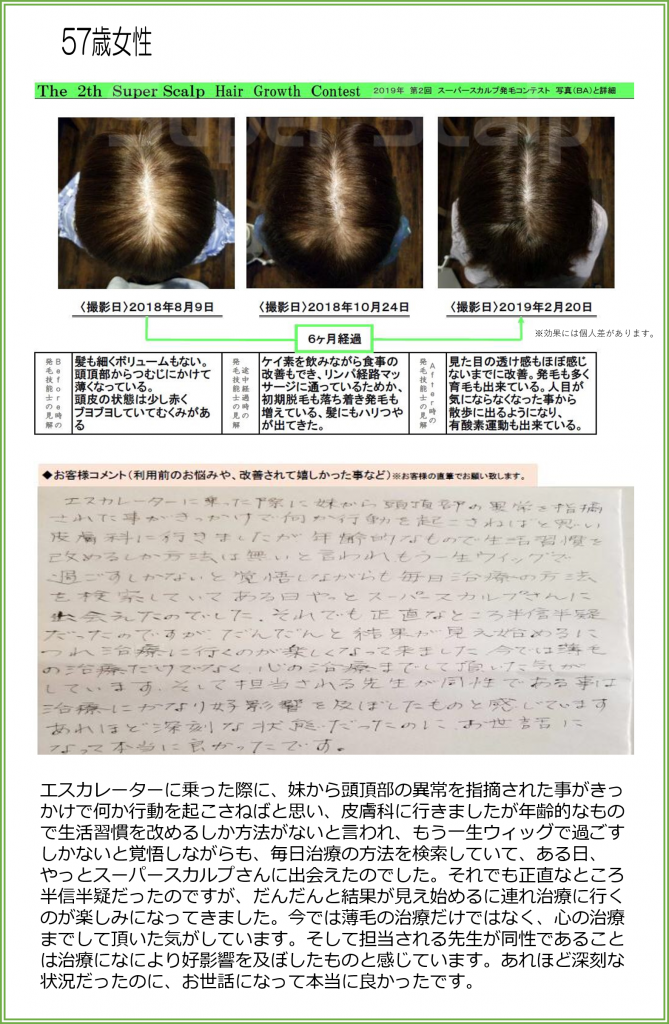 57歳女性
The 2th Super Scalp Hair Growth Contest 2019年 第2回 スーパースカルプ発毛コンテスト 写真(BA)と詳細
Super Scalp
〈撮影日〉2018年8月9日
〈撮影日〉2018年10月24日
〈撮影日〉2019年2月20日
6ヶ月経過
※効果には個人差があります。
Before時の
発毛技能士の見解
髪も細くボリュームもない。
頭頂部からつむじにかけて
薄くなっている。
頭皮の状態は少し赤く
ブヨブヨしていてむくみがあ
る
途中経過時の
発毛技能士の見解
ケイ素を飲みながら食事の
改善もでき、リンパ経路マッ
サージに通っているためか、
初期脱毛も落ち着き発毛も
増えている、髪にもハリつや
が出てきた。
After時の
発毛技能士の見解
見た目の透け感もほぼ感じ
ないまでに改善。発毛も多く
育毛も出来ている。人目が
気にならなくなった事から
散歩に出るようになり、
有酸素運動も出来ている。
◆お客様コメント(利用前のお悩みや、改善されて嬉しかった事など)※お客様の直筆でお願い致します。
エスカレーターに乗った際に妹から頭頂部の異常を指摘
された事がきっかけで何か行動を起こさねばと思い
皮膚科に行きましたが年齢的なもので生活習慣を
改めるしか方法は無いと言われもう一生ウィッグで
過ごすしかないと覚悟しながらも毎日治療の方法
を検索していてある日やっとスーパースカルプさんに
出会えたのでした。それでも正直なところ半信半疑
だったのですが、だんだんと結果が見え始めるに
つれ治療に行くのが楽しくなって来ました 今では薄毛
の治療だけでなく、心の治療までして頂いた気が
しています。そして担当される先生が同性である事は
治療にかなり好影響を及ぼしたものと感じています
あれほど深刻な状態だったのに、お世話に
なって本当に良かったです。
エスカレーターに乗った際に、妹から頭頂部の異常を指摘された事がきっ
かけで何か行動を起こさねばと思い、皮膚科に行きましたが年齢的なもの
で生活習慣を改めるしか方法がないと言われ、もう一生ウィッグで過ごす
しかないと覚悟しながらも、毎日治療の方法を検索していて、ある日、
やっとスーパースカルプさんに出会えたのでした。それでも正直なところ
半信半疑だったのですが、だんだんと結果が見え始めるに連れ治療に行く
のが楽しみになってきました。今では薄毛の治療だけではなく、心の治療
までして頂いた気がしています。そして担当される先生が同性であること
は治療になにより好影響を及ぼしたものと感じています。あれほど深刻な
状況だったのに、お世話になって本当に良かったです。